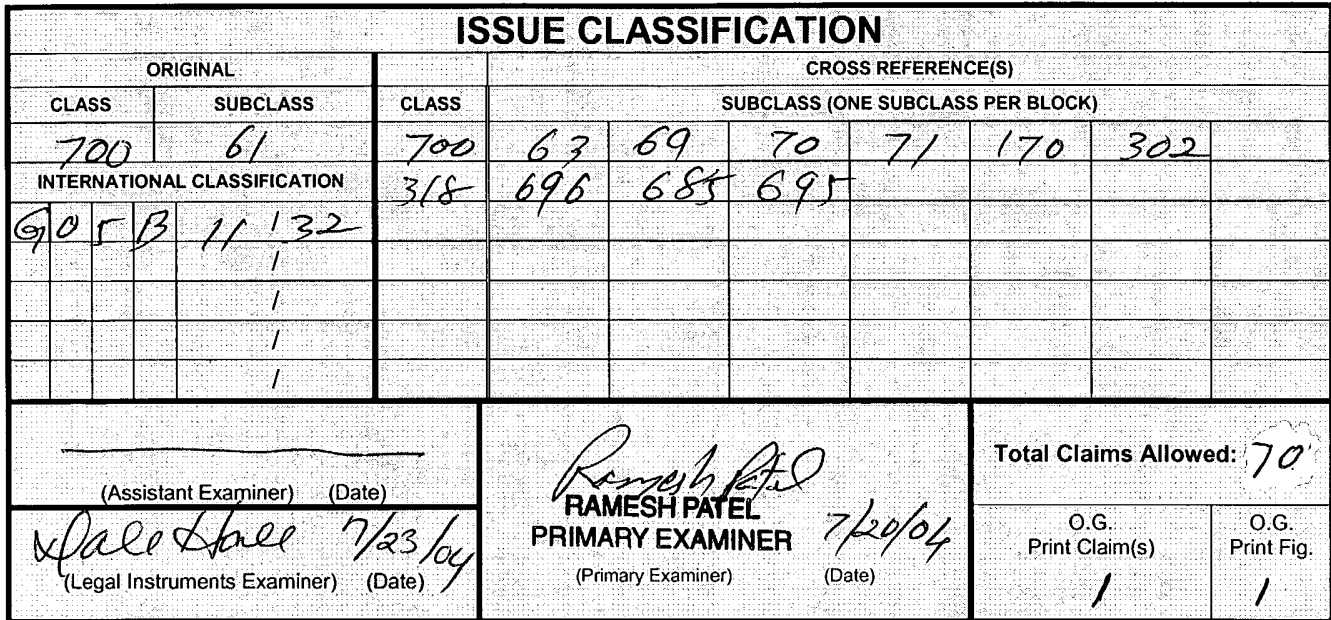 ISSUE CLASSIFICATION
ORIGINAL CROSS REFERENCE(S)
CLASS SUBCLASS CLASS SUBCLASS (ONE SUBCLASS PER BLOCK)
700 61 700 63 69 70 71 170 302
INTERNATIONAL CLASSIFICATION 318 696 685 695
G 0 5 B 11 / 32
/
/
/
/
(Assistant Examiner) (Date)
Dale Hall 7/23/04
(Legal Instruments Examiner) (Date)
Ramesh Patel
RAMESH PATEL
PRIMARY EXAMINER 7/20/04
(Primary Examiner) (Date)
Total Claims Allowed: 70
O.G.
Print Claim(s)
1
O.G.
Print Fig.
1